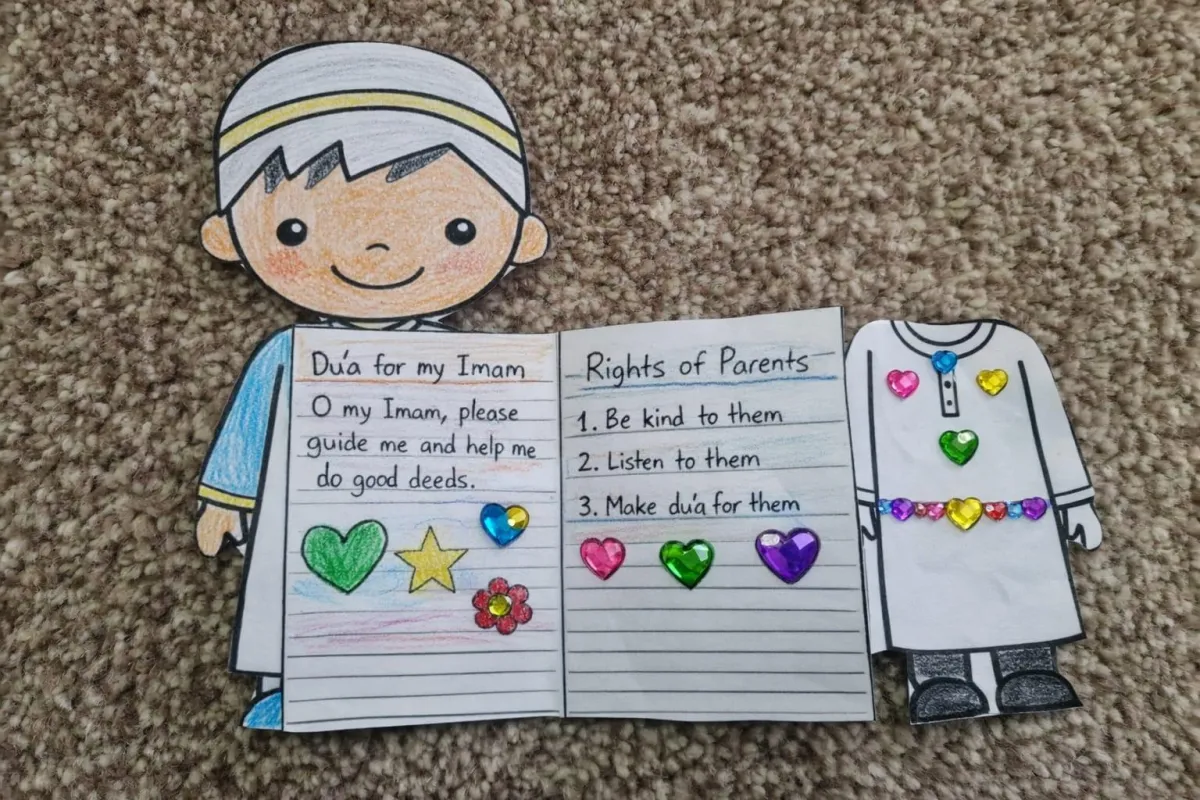 Dúa for my Imam
O my Imam, please
guide me and help me
do good deeds.
Rights of Parents
1. Be kind to them
2. Listen to them
3. Make dúa for them